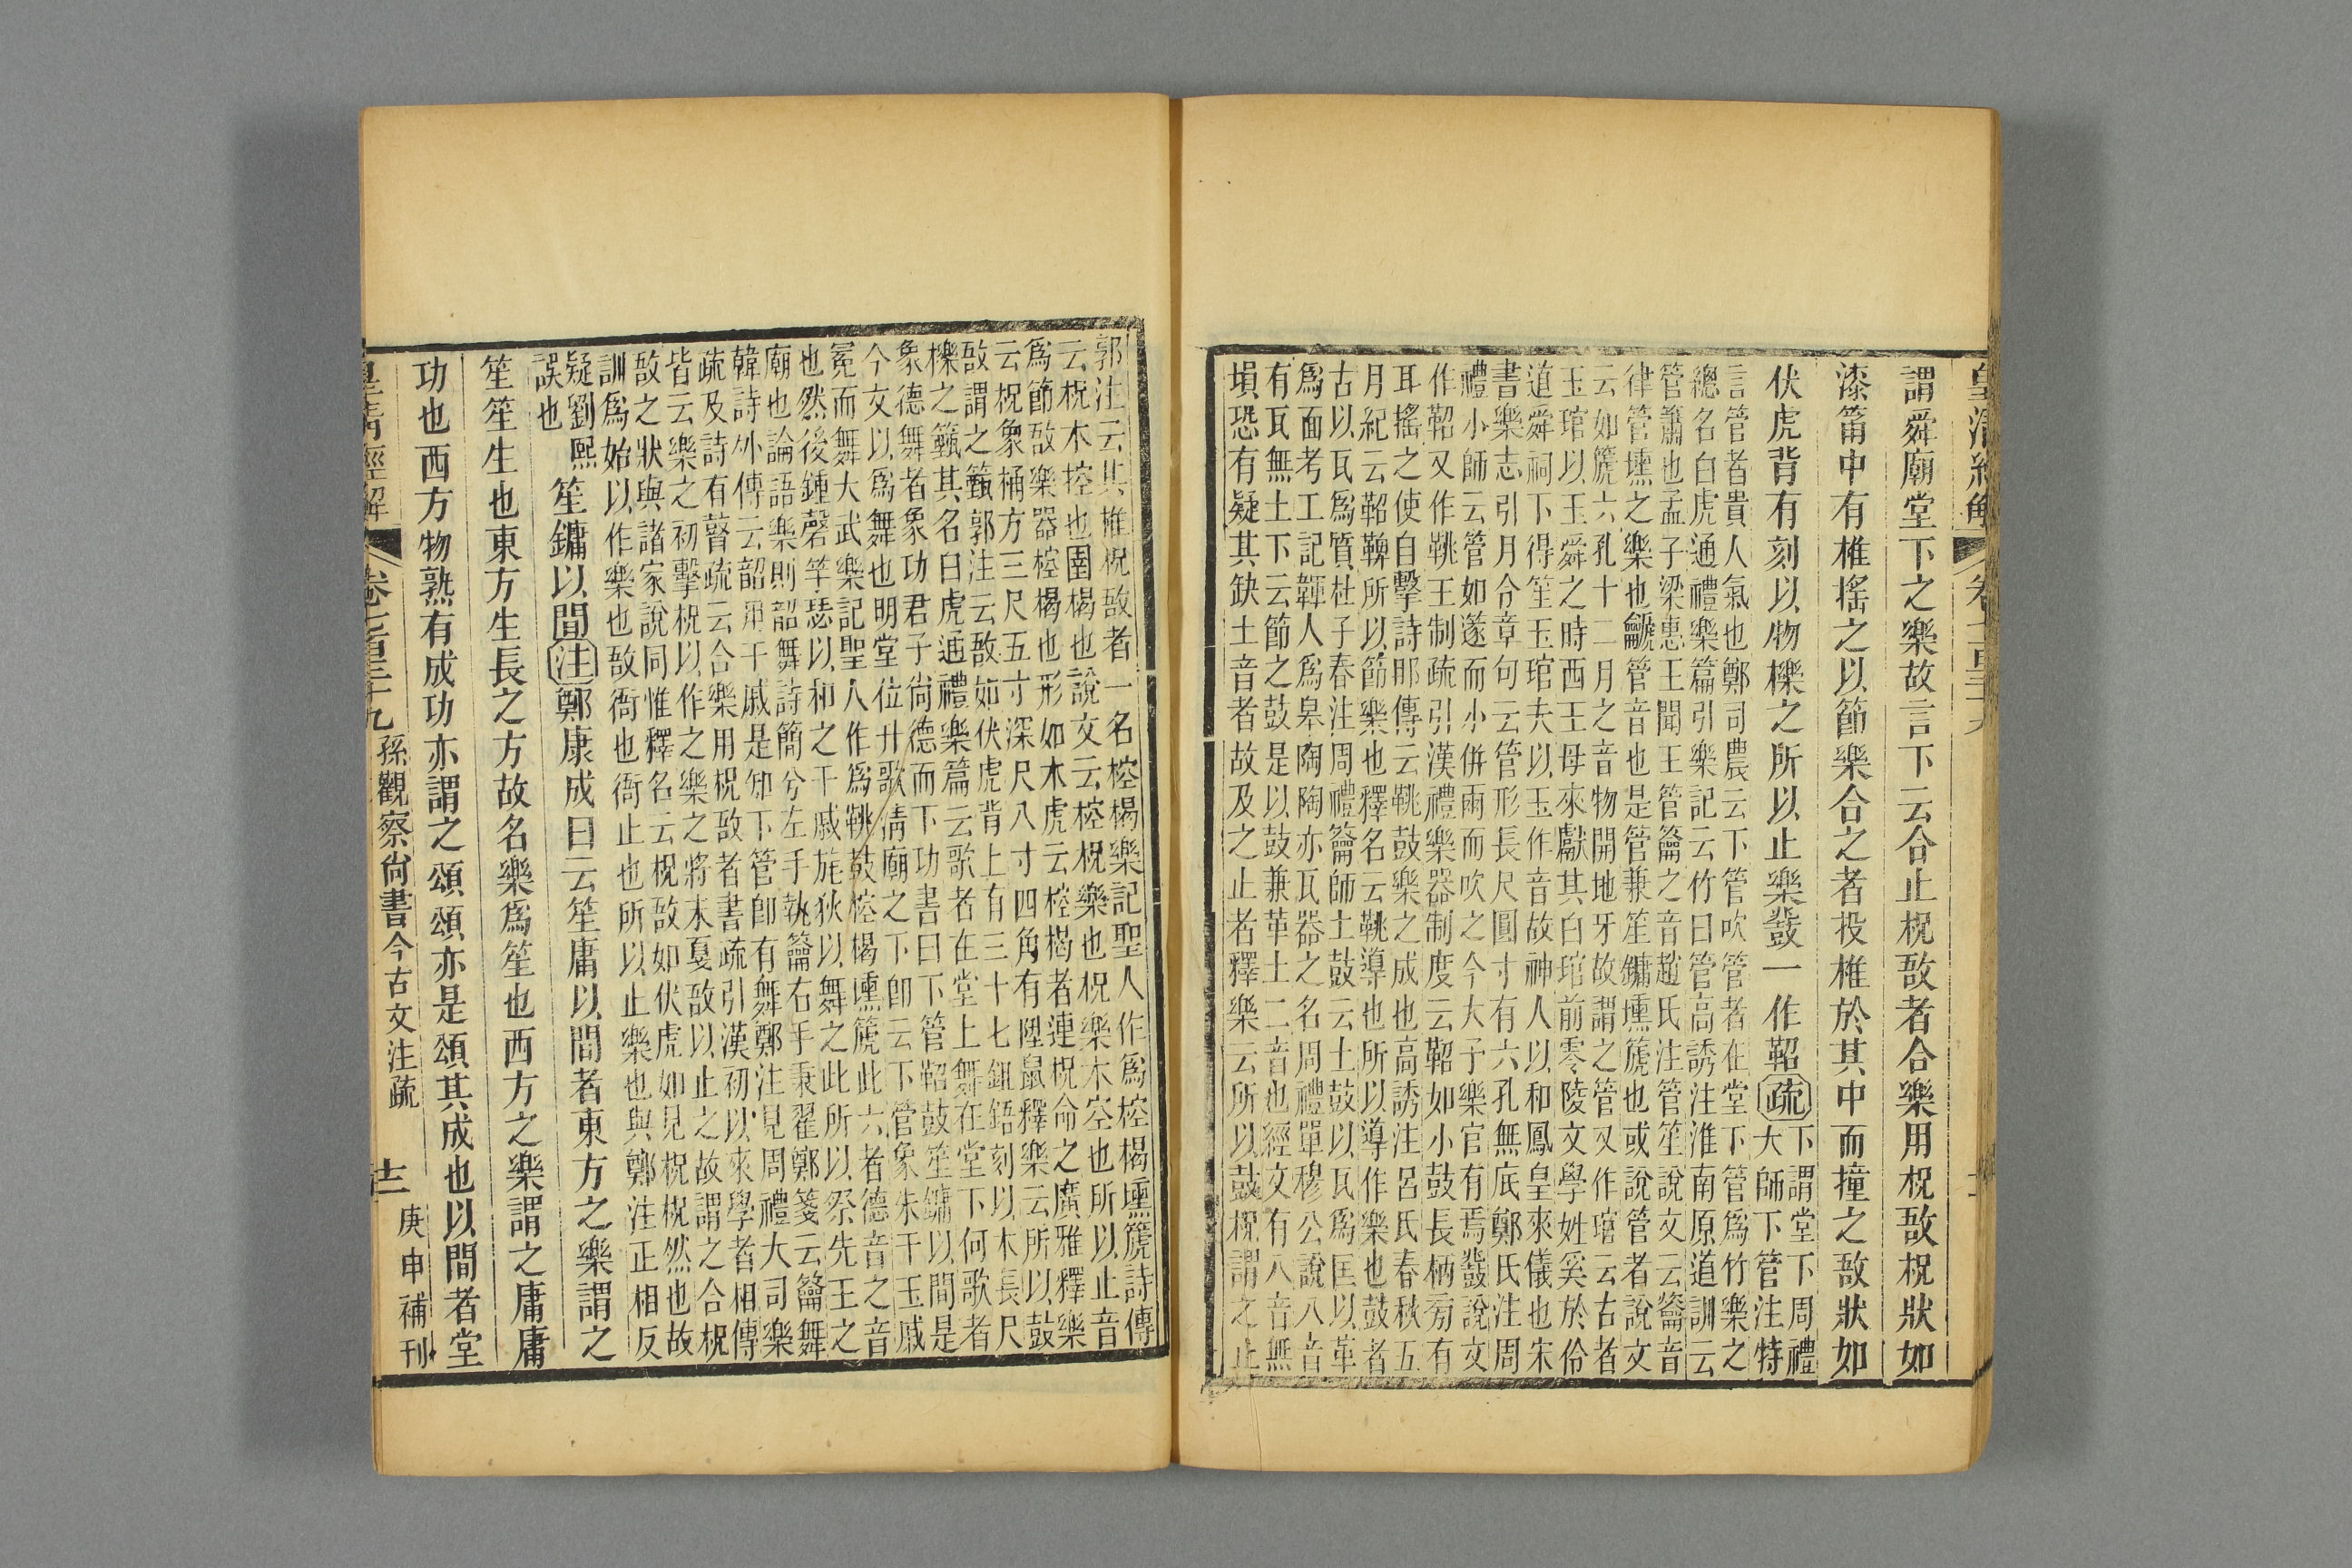 皇清經解
卷七百三十九
謂舜廟堂下之樂故言下云合止柷敔者合樂用柷敔柷狀如
漆筩中有椎搖之以節樂合之者投椎於其中而撞之敔狀如
伏虎背有刻以物櫟之所以止樂鼗一作鞀疏
下謂堂下周禮
大師下管注特
言管者貴人氣也鄭司農云下管吹管者在堂下管爲竹樂之
總名白虎通禮樂篇引樂記云竹曰管高誘注淮南原道訓云
管簫也孟子梁惠王聞王管籥之音趙氏注管笙說文云籥音
律管壎之樂也龥管音也是管兼笙鏞壎篪也或說管者說文
云如篪六孔十二月之音物開地牙故謂之管又作琯云古者
玉琯以玉舜之時西王母來獻其白琯前零陵文學姓奚於伶
道舜祠下得笙玉琯夫以玉作音故神人以和鳳皇來儀也宋
書樂志引月令章句云管形長尺圓寸有六孔無底鄭氏注周
禮小師云管如篴而小併兩而吹之今大子樂官有焉鼗說文
作鞀又作鞉王制疏引漢禮樂器制度云鞀如小鼓長柄旁有
耳搖之使自擊詩那傳云鞉鼓樂之成也高誘注呂氏春秋五
月紀云鞀鞞所以節樂也釋名云鞉導也所以導作樂也鼓者
古以瓦爲質杜子春注周禮籥師土鼓云土鼓以瓦爲匡以革
爲面考工記韗人爲皋陶陶亦瓦器之名周禮單穆公說八音
有瓦無土下云節之鼓是以鼓兼革土二音也經文有八音無
塤恐有疑其缺土音者故及之止者釋樂云所以鼓柷謂之止
郭注云其椎柷敔者一名椌楬樂記聖人作爲椌楬壎篪詩傳
云柷木椌也圉楬也說文云椌柷樂也柷樂木空也所以止音
爲節敔樂器椌楬也形如木虎云椌楬者連柷命之廣雅釋樂
云柷象桶方三尺五寸深尺八寸四角有陞鼠釋樂云所以鼓
敔謂之籈郭注云敔如伏虎背上有三十七鉏鋙刻以木長尺
櫟之籈其名白虎通禮樂篇云歌者在堂上舞在堂下何歌者
象德舞者象功君子尙德而下功書曰下管鞀鼓笙鏞以間是
今文以爲舞也明堂位廾歌清廟之下卽云下管象朱干玉戚
冕而舞大武樂記聖人作爲鞉鼓椌楬壎篪此六者德音之音
也然後鍾磬竽瑟以和之干戚旄狄以舞之此所以祭先王之
廟也論語樂則韶舞詩簡兮左手執籥右手秉翟鄭箋云籥舞
韓詩外傳云韶用干戚是知下管卽有舞鄭注見周禮大司樂
疏及詩有瞽疏云合樂用柷敔者書疏引漢初以來學者相傳
皆云樂之初擊柷以作之樂之將末戛敔以止之故謂之合柷
敔之狀與諸家說同惟釋名云柷敔如伏虎如見柷柷然也故
訓爲始以作樂也敔衙也衙止也所以止樂也與鄭注正相反
疑劉熙
誤也
笙鏞以間注鄭康成曰云笙庸以間者東方之樂謂之
笙笙生也東方生長之方故名樂爲笙也西方之樂謂之庸庸
功也西方物熟有成功亦謂之頌頌亦是頌其成也以間者堂
皇清經解
卷七百三十九
孫觀察尙書今古文注疏
十二
庚申補刊